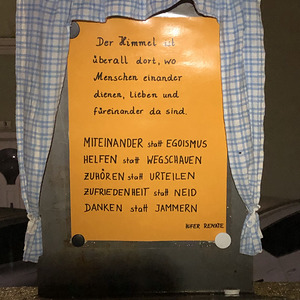 Der Himmel ist
überall dort, wo
Menschen einander
dienen, lieben und
füreinander da sind.
MITEINANDER statt EGOISMUS
HELFEN statt WEGSCHAUEN
ZUHÖREN statt URTEILEN
ZUFRIEDENHEIT statt NEID
DANKEN statt JAMMERN
RENATE